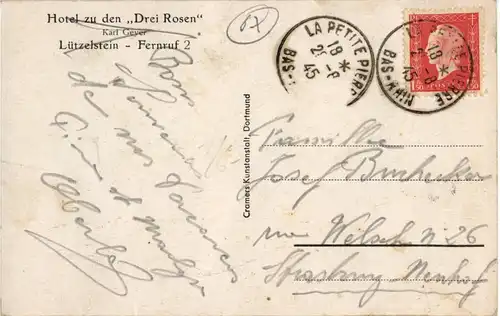 Hotel zu den „Drei Rosen"
Karl Geyer
Lützelstein - Fernruf 2
67
LA PETITE PIERRE
18 *
2 -8
45
BAS-
LA PETITE PIERRE
18 *
-8
45
BAS-RHIN
Bons
Souvenirs
de nos vacances
Cramers Kunstanstalt, Dortmund
Famille
Josef
rue Welsch N 26
Strasbourg Neuhof